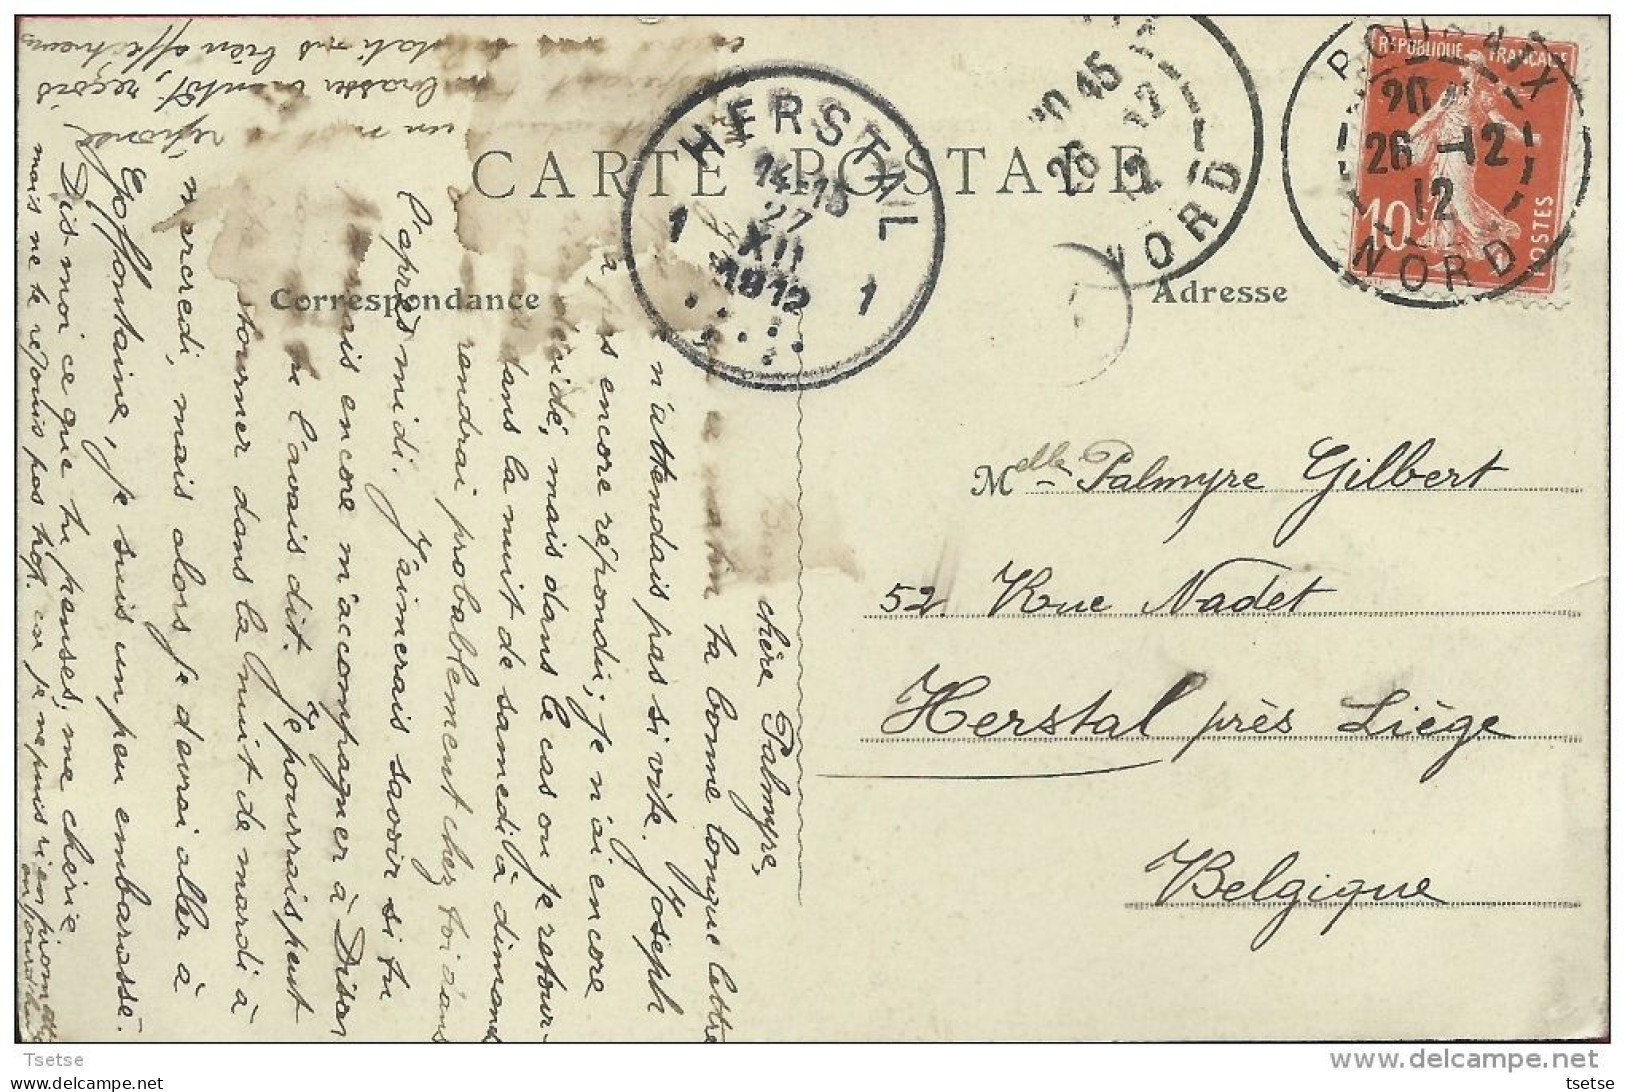 CARTE POSTALE
Correspondance
Adresse
REPUBLIQUE FRANCAISE
10
POSTES
ROUBAIX
20
26 -12
12
NORD
20 45
26 12
12
NORD
HERSTAL
14-15
27
XII
1912
1 1
Melle Palmyre Gilbert
52 Rue Nadet
Herstal près Liège
Belgique
chère Palmyre,
ta bonne longue lettre
n'attendais pas si vite. Joseph
encore répondu; je n'ai encore
décidé, mais dans le cas ou je retour-
dans la nuit de samedi à dimanche
rendrai probablement chez toi dans
l'après midi. J'aimerais savoir si tu
encore m'accompagner à Dison
tu l'avais dit. Je pourrais peut
tourner dans la nuit de mardi à
mercredi, mais alors je devrai aller à
Goffontaine, je suis un peu embarassé.
Dis-moi ce que tu penses, me chérie
mais ne te réjouis pas trop, car je ne puis rien promettre
aujourd'hui
un
réponse
embrasser bientôt, reçois
bien affectueuses
Tsetse
delcampe.net
tsetse